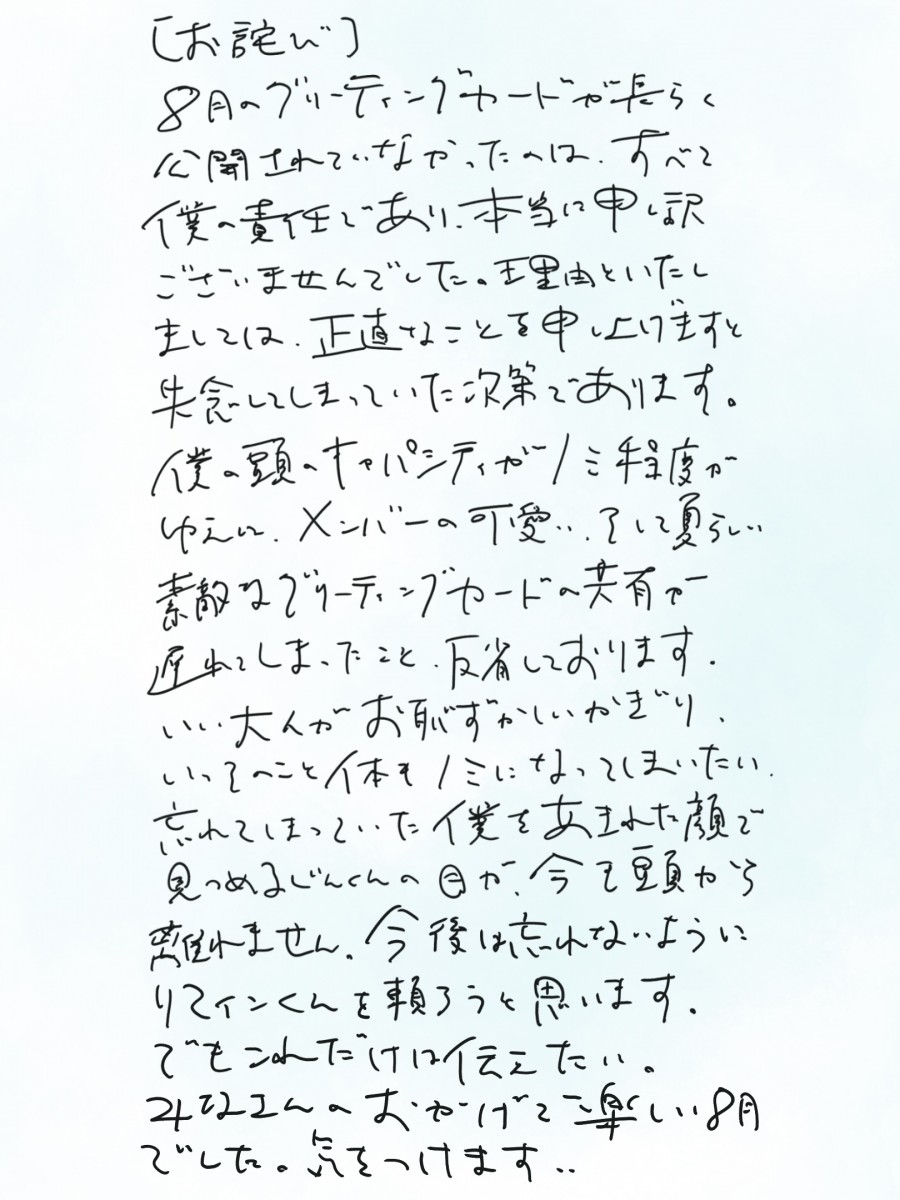 〔お詫び〕
8月のグリーティングカードが長らく
公開されていなかったのは、すべて
僕の責任であり、本当に申し訳
ございませんでした。理由といたし
ましては、正直なことを申し上げますと
失念してしまっていた次第であります。
僕の頭のキャパシティがノミ程度が
ゆえに、メンバーの可愛い、そして夏らしい
素敵なグリーティングカードの共有が
遅れてしまったこと、反省しております。
いい大人がお恥ずかしいかぎり、
いっそのこと体もノミになってしまいたい。
忘れてしまっていた僕をあきれた顔で
見つめるじんくんの目が、今も頭から
離れません。今後は忘れないように
リマインくんを頼ろうと思います。
でもこれだけは伝えたい。
みなさんのおかげで楽しい8月
でした。気をつけます..